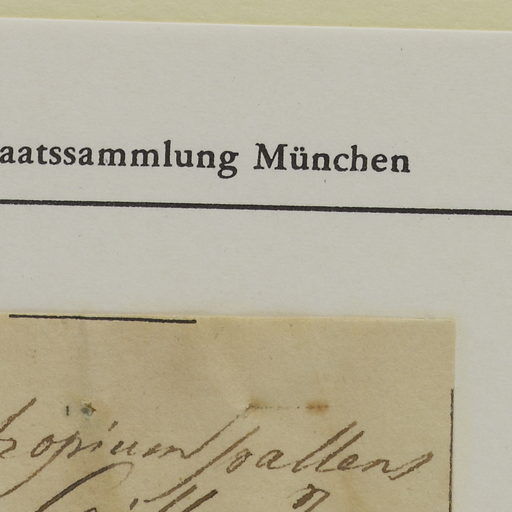 aatssammlung München
tropium pallens